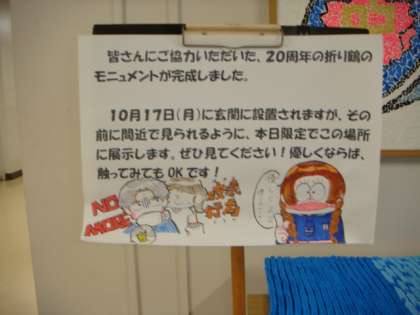 皆さんにご協力いただいた、20周年の折り鶴の
モニュメントが完成しました。
10月17日(月)に玄関に設置されますが、その
前に間近で見られるように、本日限定でこの場所
に展示します。ぜひ見てください!優しくならば、
触ってみてもOKです!
NO
MORE